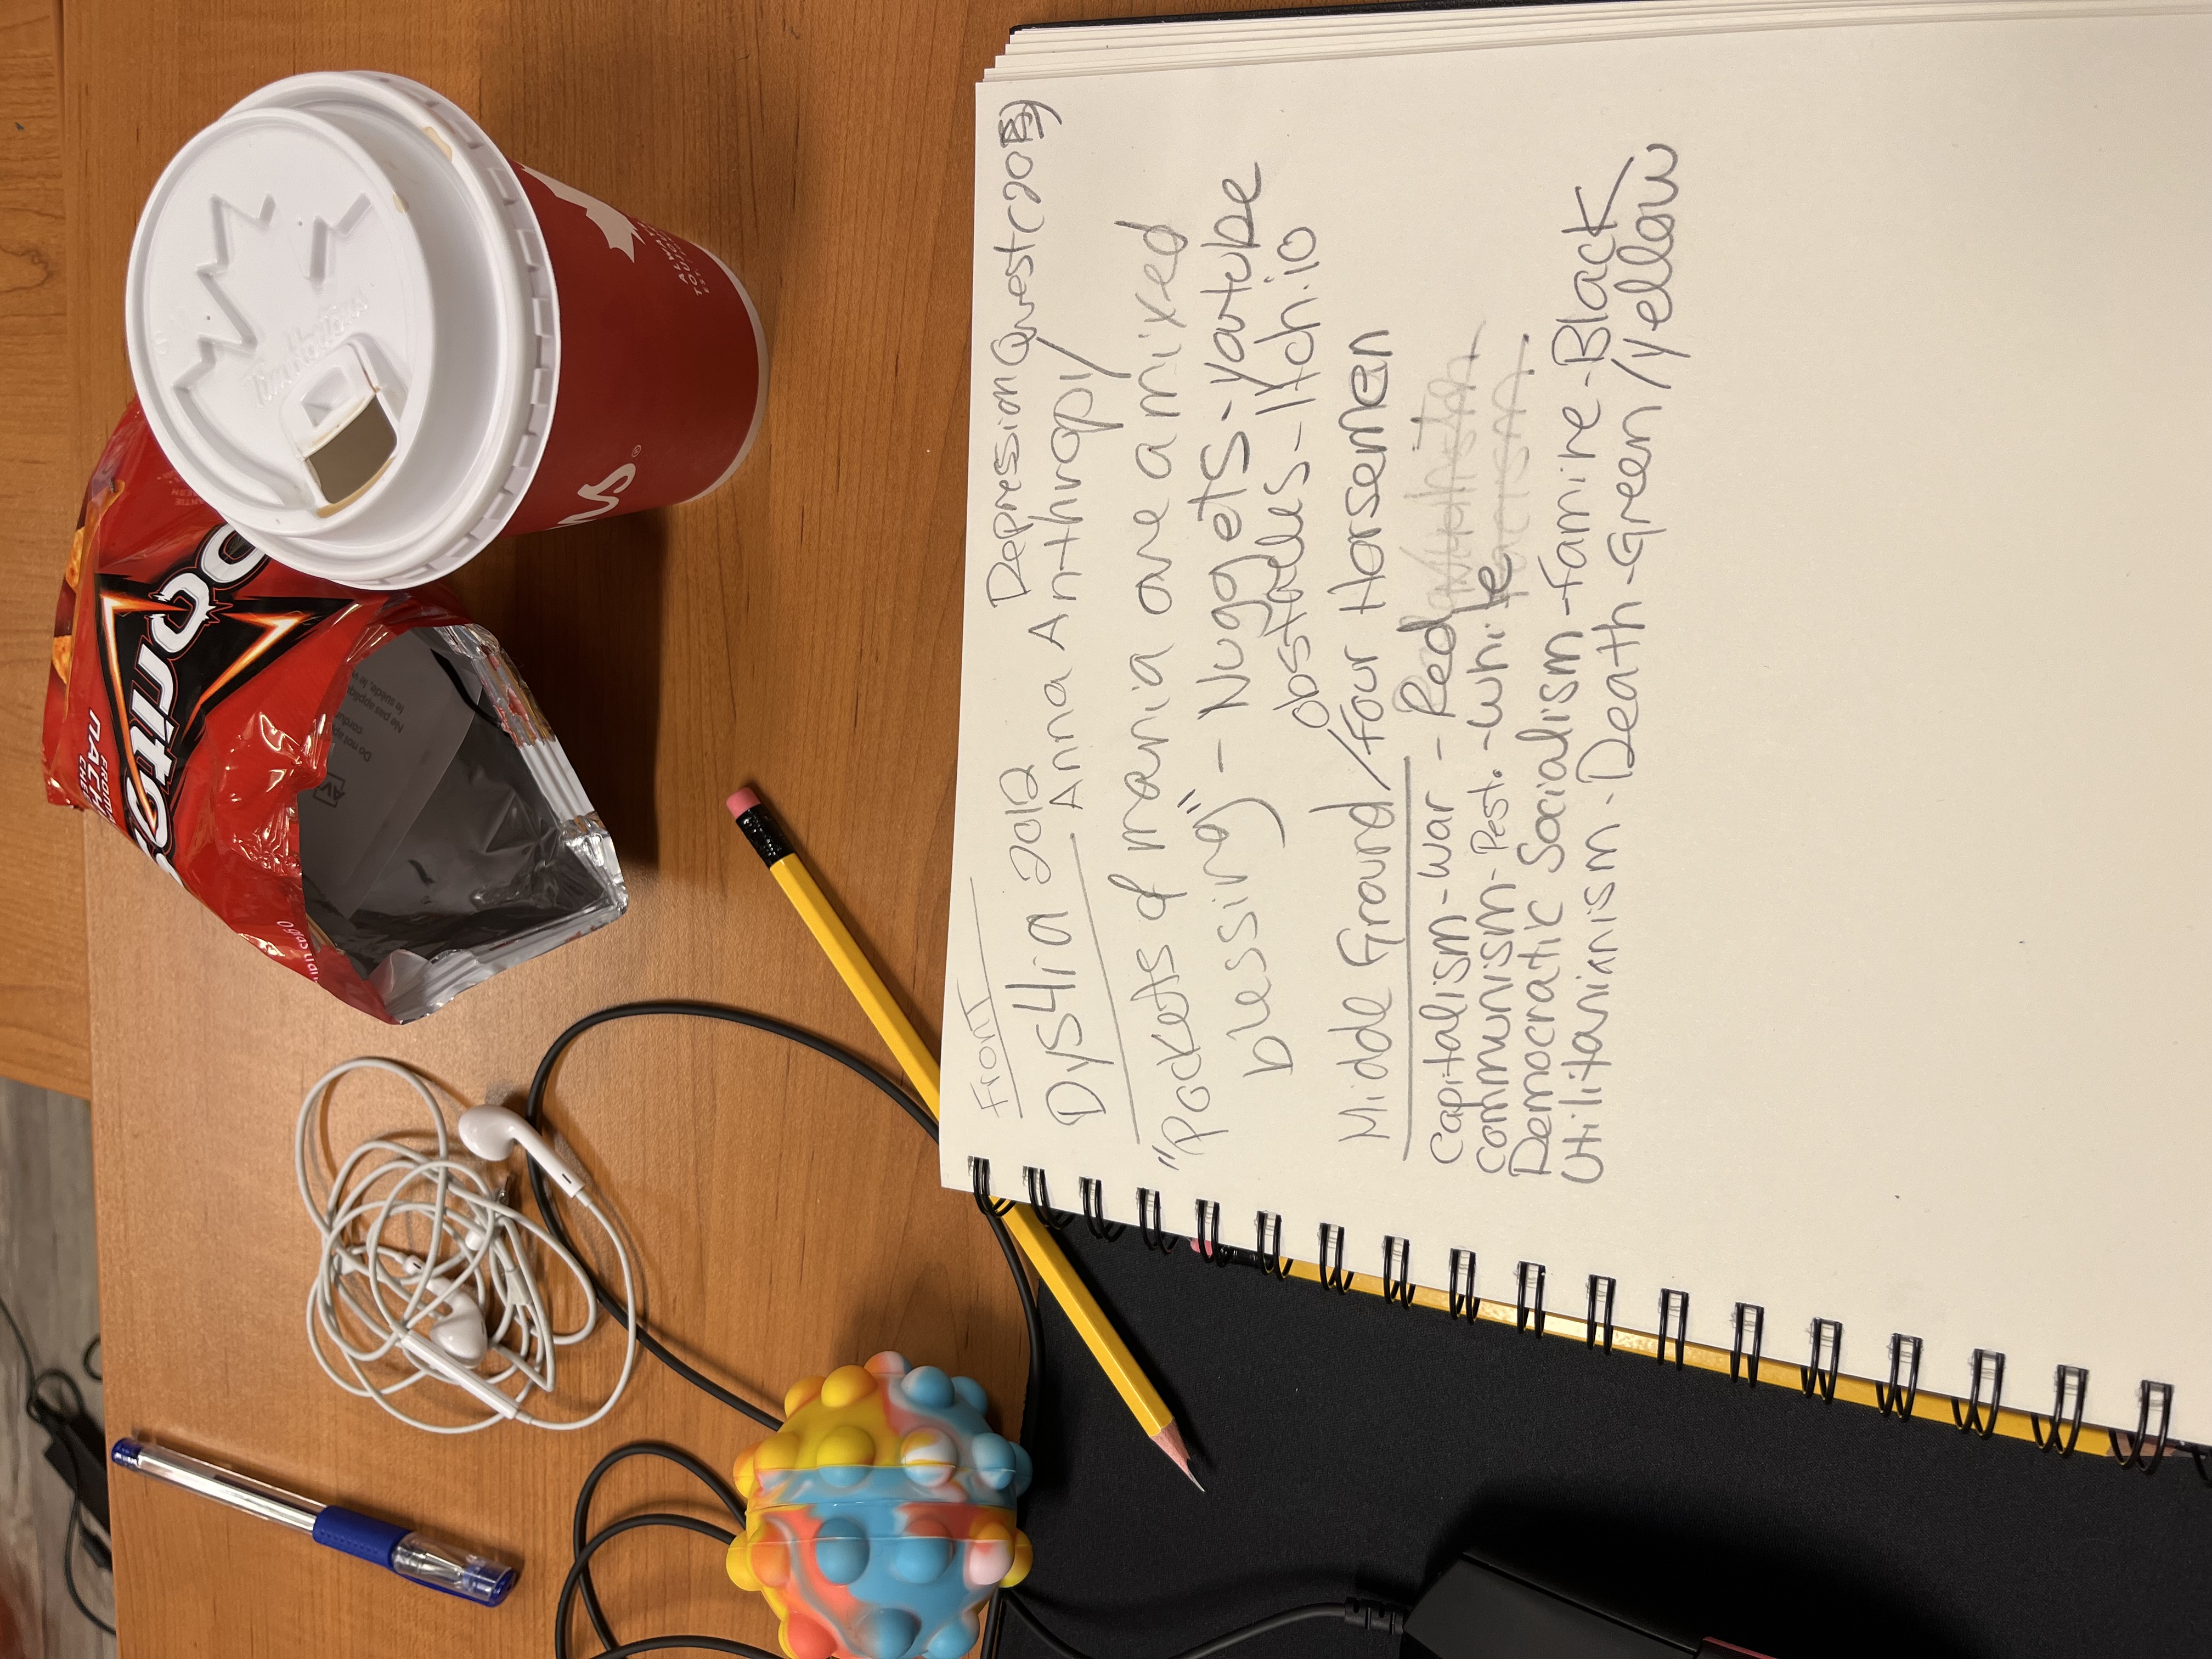 FRONT
Dys4ia 2012 Depression Quest (20
Anna Anthropy
"Pockets of mania are a mixed
blessing" - Nuggets - Youtube
obstacles - Itch.io
Middle Ground / Four Horsemen
Capitalism - War - Red
Communism - Pest. - White
Democratic Socialism - Famine - Black
Utilitarianism - Death - Green / Yellow
Tim Hortons
NS®
Doritos
NACH
Do not
Ne pas